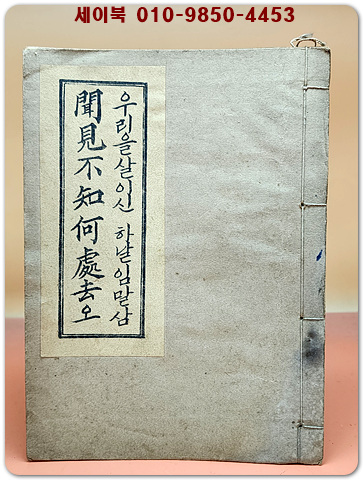 세이북 010-9850-4453
우리을살이신 하날임말삼
聞見不知何處去오